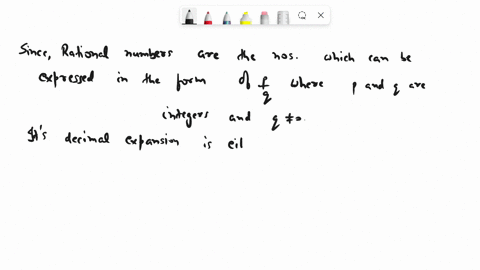 Since, Rational numbers are the nos. which can be
expressed in the form of p/q where p and q are
integers and q ≠ 0.
It's decimal expansion is eit